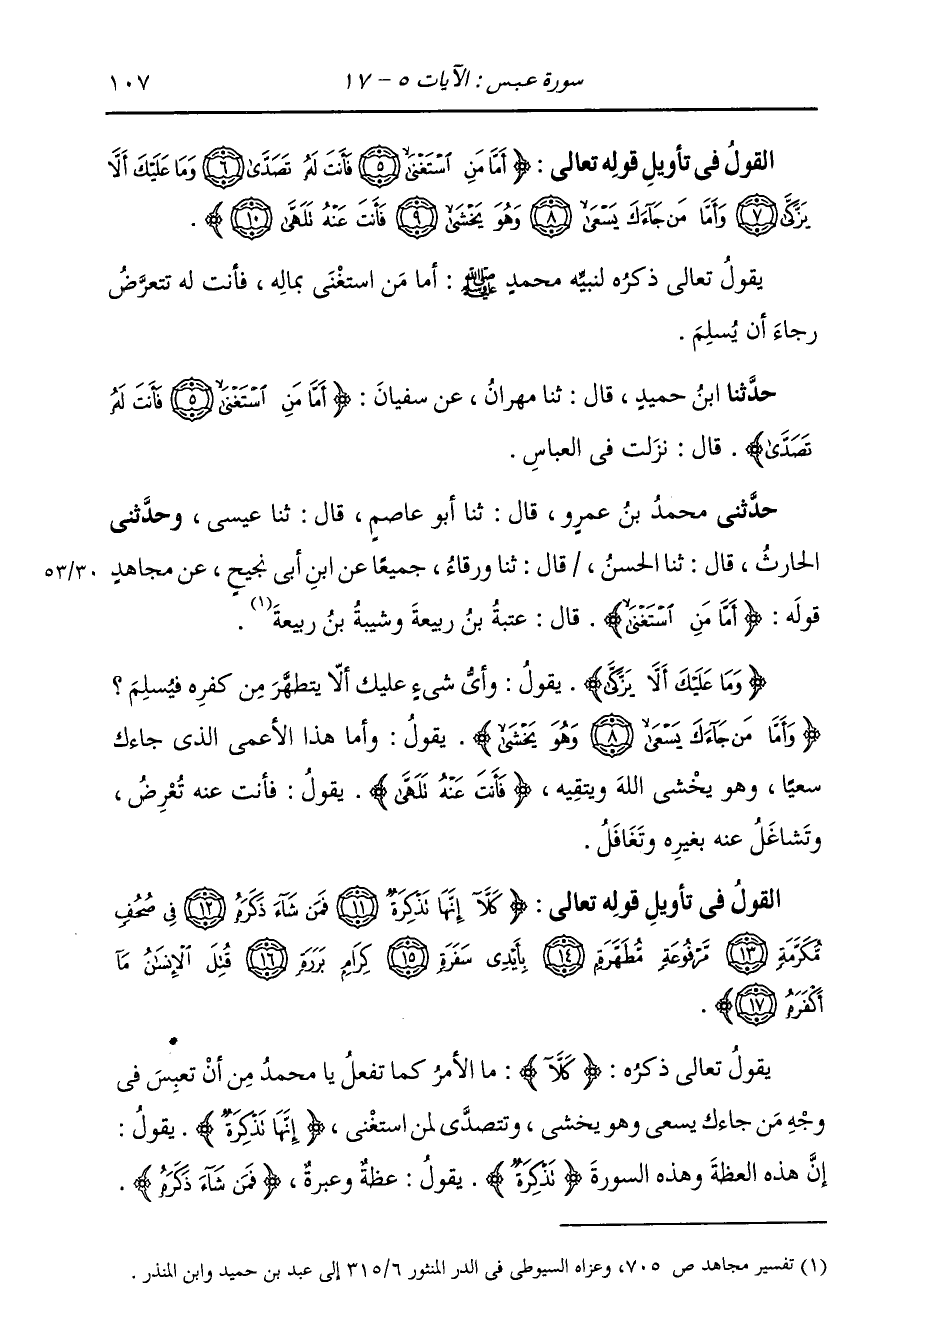 سورة عبس : الآيات ٥ - ١٧ ١٠٧
القولُ فى تأويلِ قولِه تعالى : ﴿ أَمَّا مَنِ ٱسْتَغْنَىٰ ٥ فَأَنتَ لَهُۥ تَصَدَّىٰ ٦ وَمَا عَلَيْكَ أَلَّا
يَزَّكَّىٰ ٧ وَأَمَّا مَن جَآءَكَ يَسْعَىٰ ٨ وَهُوَ يَخْشَىٰ ٩ فَأَنتَ عَنْهُ تَلَهَّىٰ ١٠ ﴾ .
يقولُ تعالى ذكرُه لنبيِّه محمدٍ ﷺ : أما مَن استغْنَى بمالِه ، فأنت له تتعرَّضُ
رجاءَ أن يُسلِمَ .
حدَّثنا ابنُ حميدٍ ، قال : ثنا مهرانُ ، عن سفيانَ : ﴿ أَمَّا مَنِ ٱسْتَغْنَىٰ ٥ فَأَنتَ لَهُۥ
تَصَدَّىٰ ﴾ . قال : نزَلت فى العباسِ .
حدَّثنى محمدُ بنُ عمرٍو ، قال : ثنا أبو عاصمٍ ، قال : ثنا عيسى ، وحدَّثنى
الحارثُ ، قال : ثنا الحسنُ ، / قال : ثنا ورقاءُ ، جميعًا عن ابنِ أبى نجيحٍ ، عن مجاهدٍ ٥٣/٣٠
قولَه : ﴿ أَمَّا مَنِ ٱسْتَغْنَىٰ ﴾ . قال : عتبةُ بنُ ربيعةَ وشيبةُ بنُ ربيعةَ(١) .
﴿ وَمَا عَلَيْكَ أَلَّا يَزَّكَّىٰ ﴾ . يقولُ : وأىُّ شىءٍ عليك ألّا يتطهَّرَ مِن كفرِه فيُسلِمَ ؟
﴿ وَأَمَّا مَن جَآءَكَ يَسْعَىٰ ٨ وَهُوَ يَخْشَىٰ ﴾ . يقولُ : وأما هذا الأعمى الذى جاءك
سعيًا ، وهو يخْشى اللهَ ويتقِيه ، ﴿ فَأَنتَ عَنْهُ تَلَهَّىٰ ﴾ . يقولُ : فأنت عنه تُعْرِضُ ،
وتَشاغَلُ عنه بغيرِه وتَغَافَلُ .
القولُ فى تأويلِ قولِه تعالى : ﴿ كَلَّآ إِنَّهَا تَذْكِرَةٌ ١١ فَمَن شَآءَ ذَكَرَهُۥ ١٢ فِى صُحُفٍ
مُّكَرَّمَةٍ ١٣ مَّرْفُوعَةٍ مُّطَهَّرَةٍۭ ١٤ بِأَيْدِى سَفَرَةٍ ١٥ كِرَامٍۭ بَرَرَةٍ ١٦ قُتِلَ ٱلْإِنسَٰنُ مَآ
أَكْفَرَهُۥ ١٧ ﴾ .
يقولُ تعالى ذكرُه : ﴿ كَلَّآ ﴾ : ما الأمرُ كما تفعلُ يا محمدُ مِن أنْ تعبِسَ فى
وجْهِ مَن جاءك يسعى وهو يخشى ، وتتصدَّى لمن استغْنى ، ﴿ إِنَّهَا تَذْكِرَةٌ ﴾ . يقولُ :
إنَّ هذه العظةَ وهذه السورةَ ﴿ تَذْكِرَةٌ ﴾ . يقولُ : عظةٌ وعبرةٌ ، ﴿ فَمَن شَآءَ ذَكَرَهُۥ ﴾ .
(١) تفسير مجاهد ص ٧٠٥، وعزاه السيوطى فى الدر المنثور ٣١٥/٦ إلى عبد بن حميد وابن المنذر .